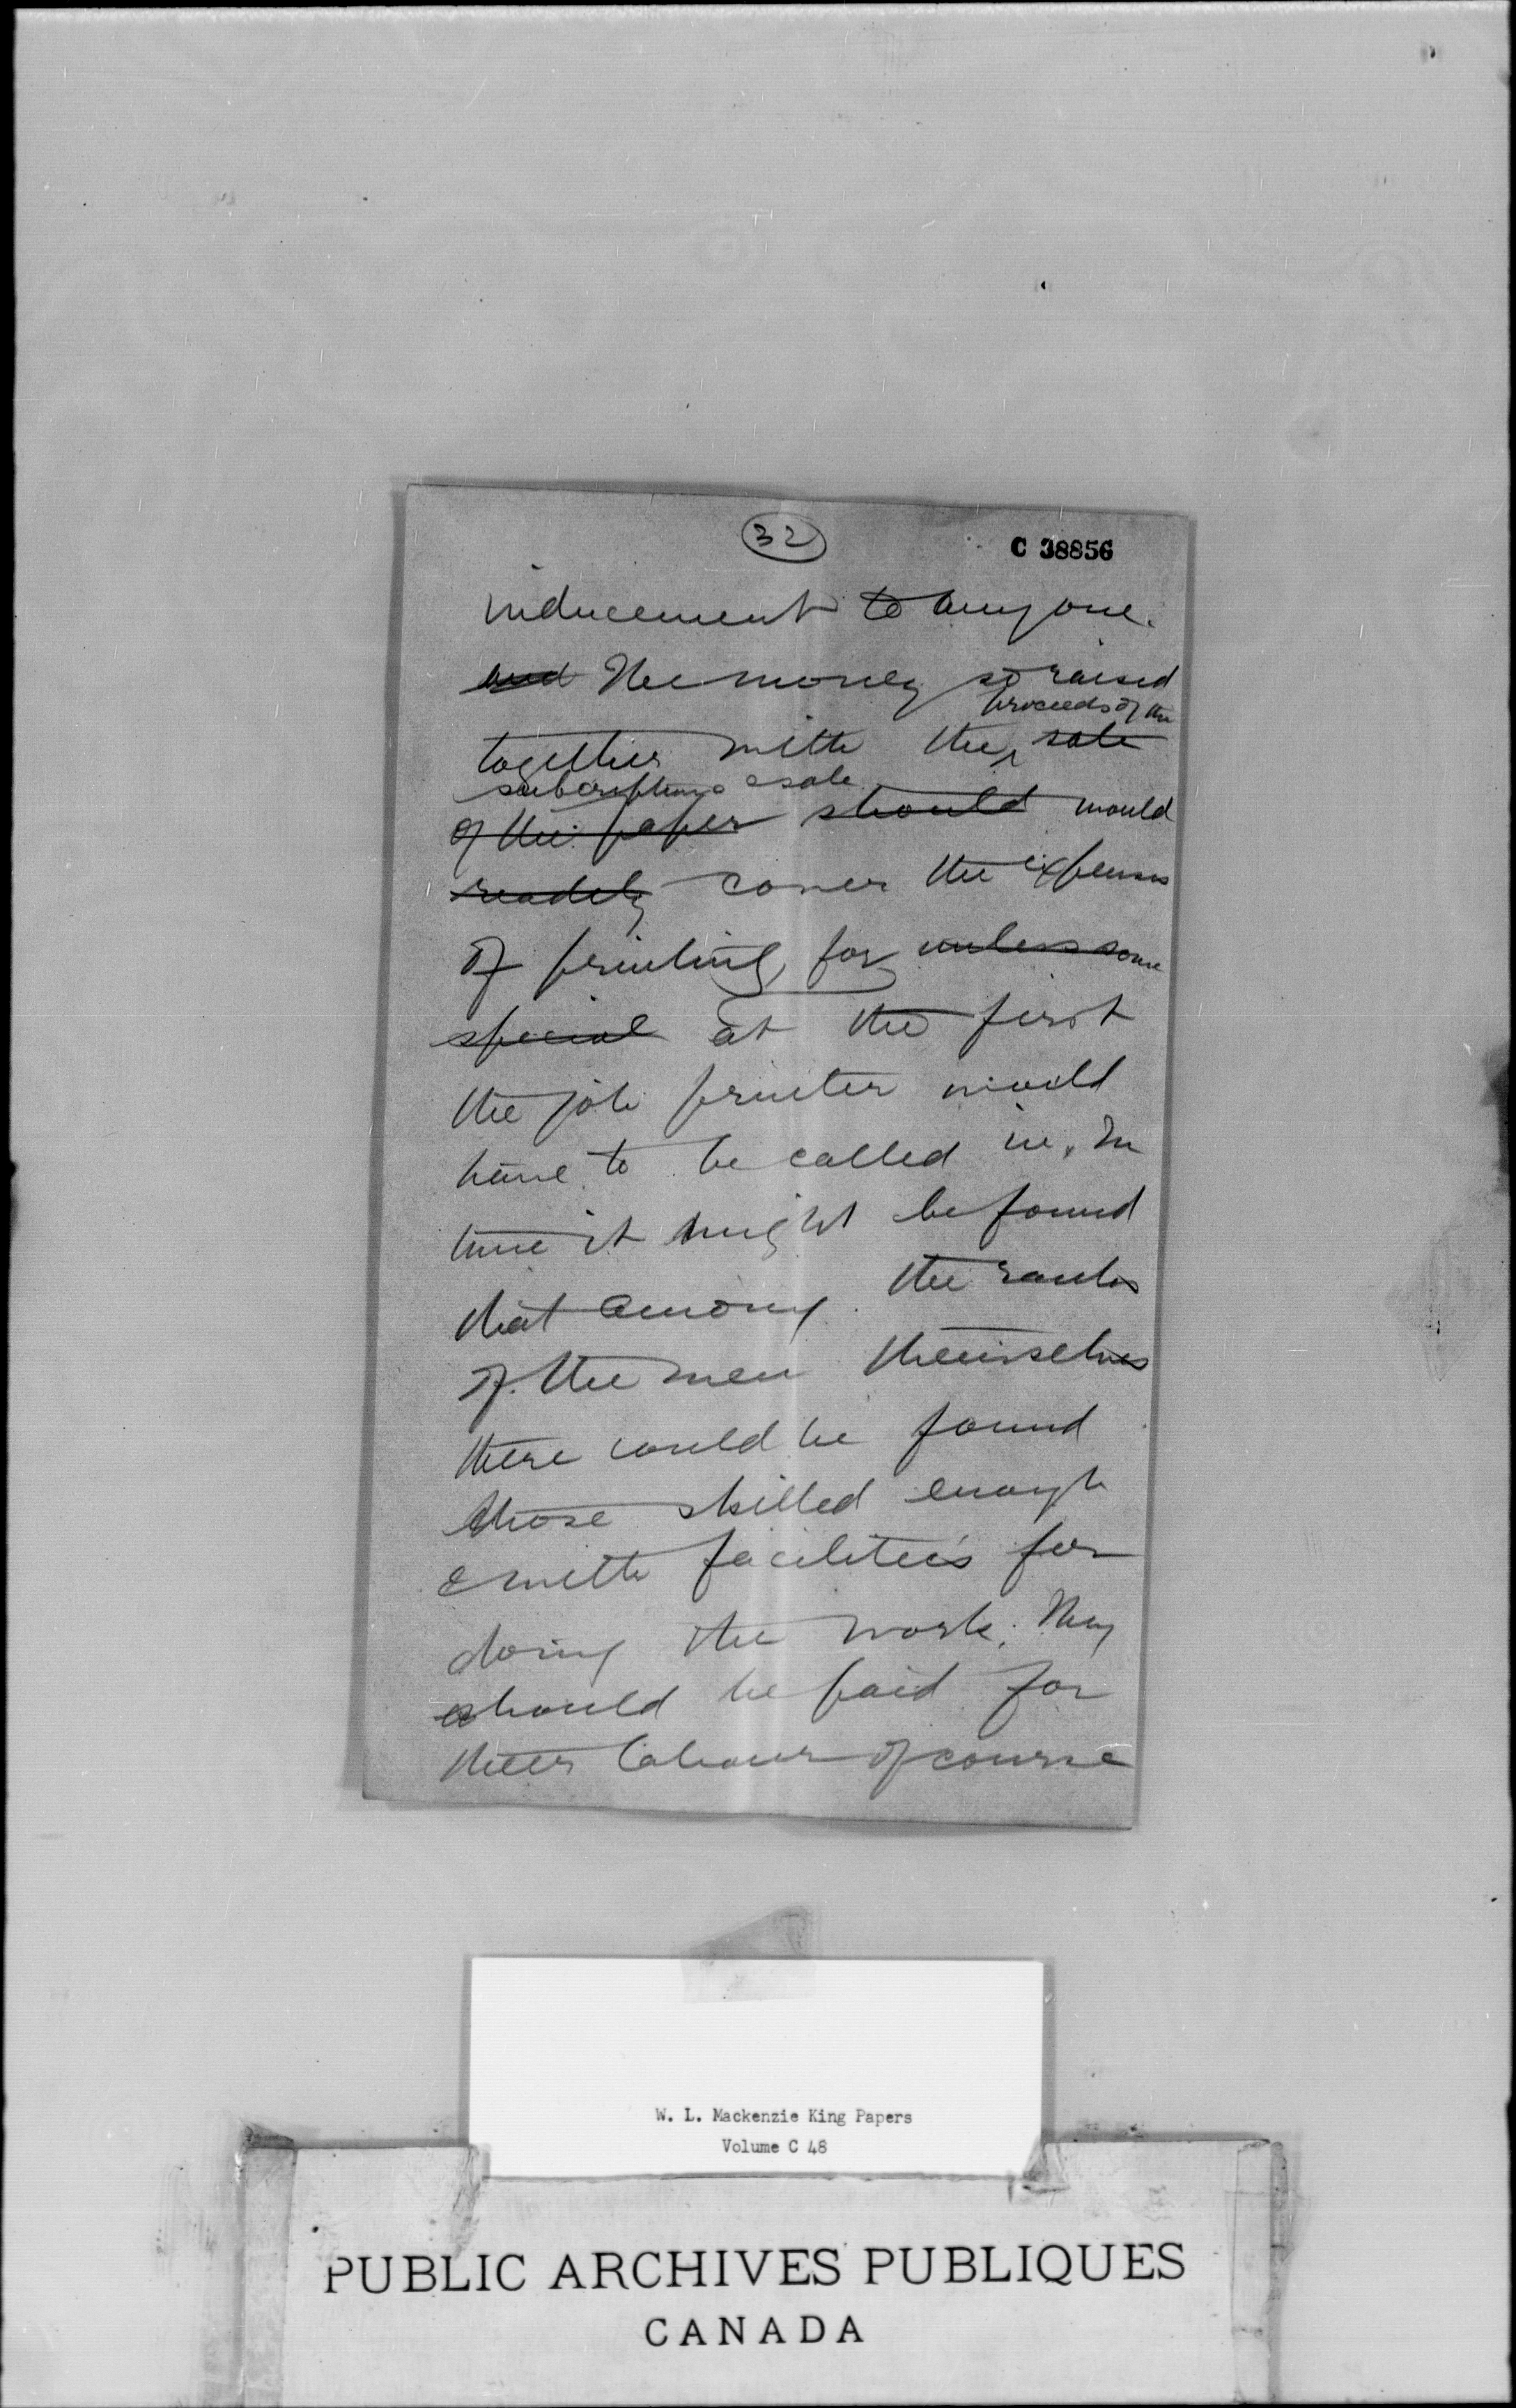 32
C 38856
inducement to anyone.
and The money so raised
proceeds of the
together with the sale
subscriptions & sale
of the paper should would
readily cover the expenses
of printing, for unless some
special at the first
the job printer would
have to be called in. In
time it might be found
that among the ranks
of the men themselves
there could be found
those skilled enough
& with facilities for
doing the work. They
should be paid for
their labour of course
W. L. Mackenzie King Papers
Volume C 48
PUBLIC ARCHIVES PUBLIQUES
CANADA